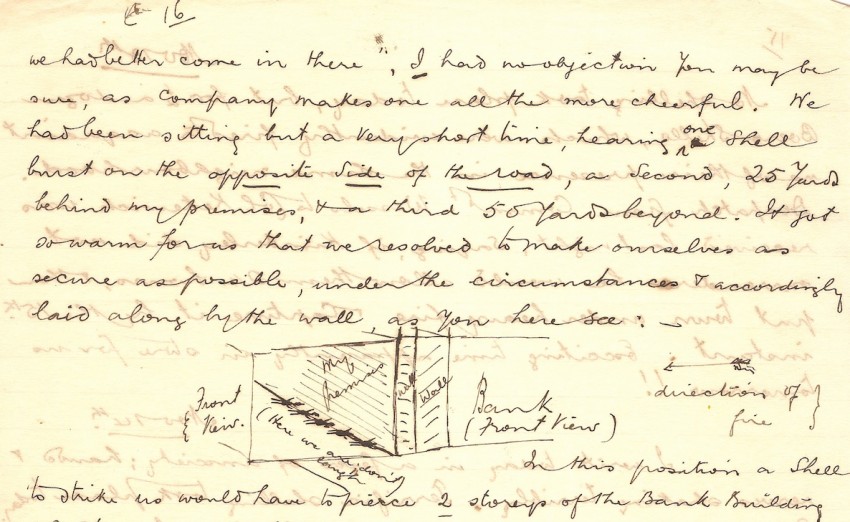 16
we had better come in there", I had no objection you may be
sure, as company makes one all the more cheerful. We
had been sitting but a very short time, hearing one Shell
burst on the opposite side of the road, a second, 25 Yards
behind my premises, & a third 50 Yards beyond. It got
so warm for us that we resolved to make ourselves as
secure as possible, under the circumstances & accordingly
laid along by the wall, as you here see: —
My
premises
Wall
Wall
Front
View.
(Here we are doing
laugh
Bank
(Front View)
direction of
fire
In this position a Shell
to strike us would have to pierce 2 storeys of the Bank Building